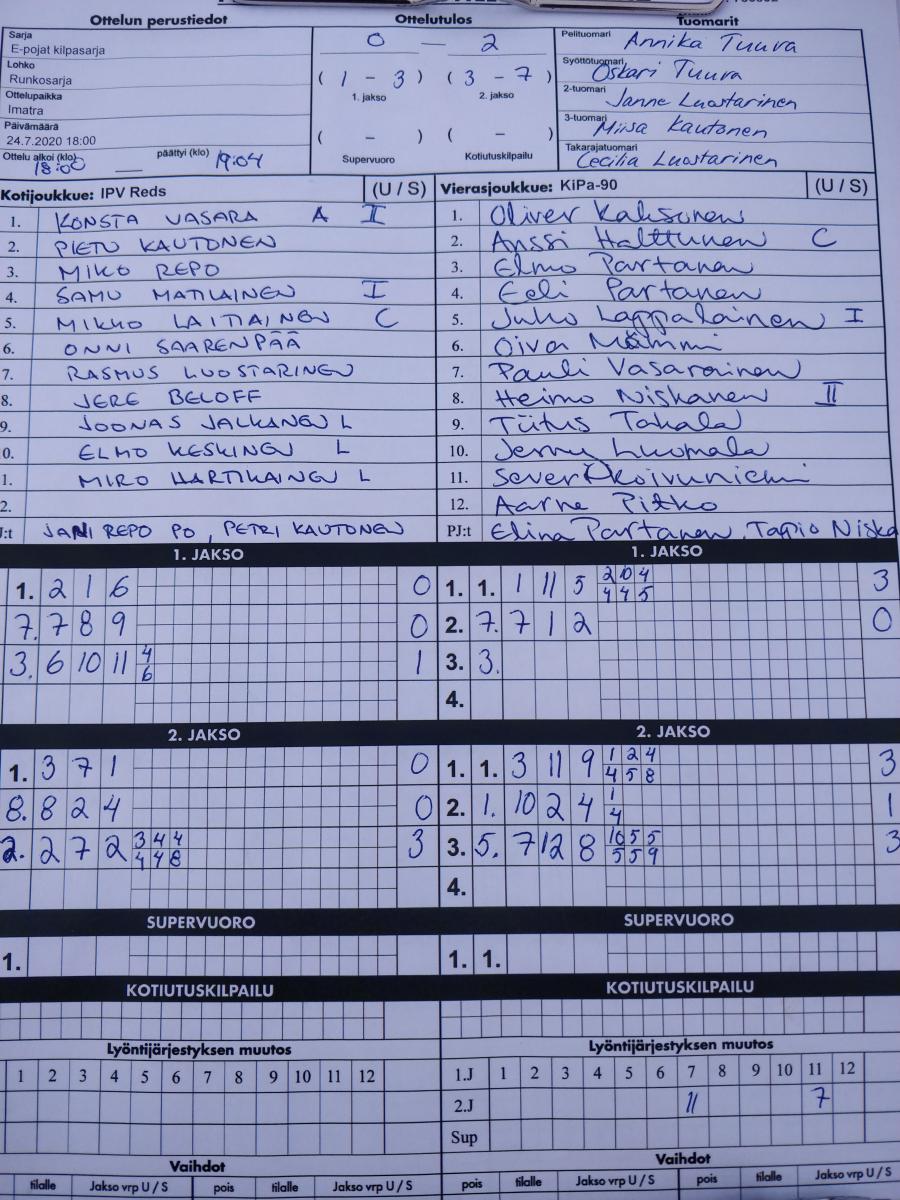 Ottelun perustiedot
Ottelutulos
Tuomarit
Sarja
E-pojat kilpasarja
Lohko
Runkosarja
Ottelupaikka
Imatra
Päivämäärä
24.7.2020 18:00
Ottelu alkoi (klo) 18:00 — päättyi (klo) 19:04
0 — 2
( 1 - 3 ) ( 3 - 7 )
1. jakso 2. jakso
( - ) ( - )
Supervuoro Kotiutuskilpailu
Pelituomari Annika Tuura
Syöttötuomari Oskari Tuura
2-tuomari Janne Luostarinen
3-tuomari Miisa Kautonen
Takarajatuomari Cecilia Luostarinen
Kotijoukkue: IPV Reds (U / S)
1. KONSTA VASARA A I
2. PIETU KAUTONEN
3. MIKO REPO
4. SAMU MATILAINEN I
5. MIKKO LAITIAINEN C
6. ONNI SAARENPÄÄ
7. RASMUS LUOSTARINEN
8. JERE BELOFF
9. JOONAS JALKANEN L
0. ELMO KESKINEN L
1. MIRO HARTIKAINEN L
2.
J:t JANI REPO PO, PETRI KAUTONEN
Vierasjoukkue: KiPa-90 (U / S)
1. Oliver Kaksonen
2. Anssi Halttunen C
3. Elmo Partanen
4. Eeli Partanen
5. Juho Lappalainen I
6. Oiva Mämmi
7. Pauli Vasarainen
8. Heimo Niskanen II
9. Tiitus Takala
10. Jenny Luomala
11. Severi Koivuniemi
12. Aarne Pitko
PJ:t Elina Partanen, Tapio Niska
1. JAKSO
1. 2 1 6 0
7. 7 8 9 0
3. 6 10 11 4 1
6
1. JAKSO
1. 1. 1 11 5 2 10 4 3
4 4 5
2. 7. 7 1 2 0
3. 3.
4.
2. JAKSO
1. 3 7 1 0
8. 8 2 4 0
2. 2 7 2 3 4 4 3
4 4 8
2. JAKSO
1. 1. 3 11 9 1 2 4 3
4 5 8
2. 1. 10 2 4 1 1
4
3. 5. 7 12 8 10 5 5 3
5 5 9
4.
SUPERVUORO
1.
SUPERVUORO
1. 1.
KOTIUTUSKILPAILU
KOTIUTUSKILPAILU
Lyöntijärjestyksen muutos
1 2 3 4 5 6 7 8 9 10 11 12
Lyöntijärjestyksen muutos
1.J 1 2 3 4 5 6 7 8 9 10 11 12
2.J 11 7
Sup
Vaihdot
tilalle Jakso vrp U / S pois tilalle Jakso vrp U / S
Vaihdot
pois tilalle Jakso vrp U / S pois tilalle Jakso vrp U / S